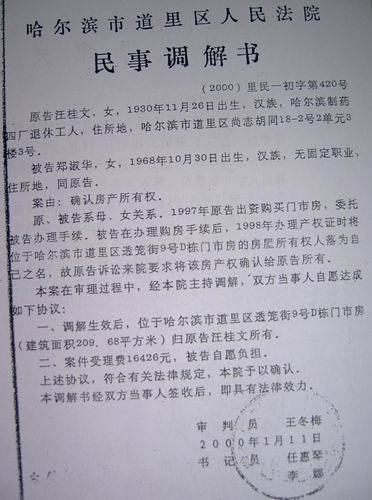 哈尔滨市道里区人民法院
民事调解书
(2000)里民一初字第420号
原告汪桂文，女，1930年11月26日出生，汉族，哈尔滨制药
四厂退休工人，住所地，哈尔滨市道里区尚志胡同18-2号2单元3
楼3号.
被告郑淑华，女，1968年10月30日出生，汉族，无固定职业，
住所地，同原告.
案由：确认房产所有权.
原、被告系母、女关系. 1997年原告出资购买门市房，委托
被告办理手续. 被告在办理购房手续后，1998年办理产权证时将
位于哈尔滨市道里区透笼街9号D栋门市房的房屋所有权人落为自
己之名，故原告诉讼来院要求将该房产权确认给原告所有.
本案在审理过程中，经本院主持调解，双方当事人自愿达成
如下协议：
一、调解生效后，位于哈尔滨市道里区透笼街9号D栋门市房
(建筑面积209．68平方米)归原告汪桂文所有.
二、案件受理费16426元，被告自愿负担.
上述协议，符合有关法律规定，本院予以确认.
本调解书经双方当事人签收后，即具有法律效力.
审 判 员 王冬梅
2000年1月11日
书 记 员 任惠琴
李 娜